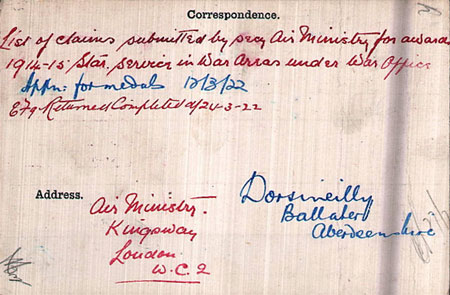 Correspondence.
List of claims submitted by secy Air Ministry for award
1914-15 Star, service in War Areas under War Office
Appn: for medals 12/3/22
E79 Returned Completed d/24-3-22
Address.
Air Ministry.
Kingsway
London
W.C.2
Dorsincilly
Ballater
Aberdeenshire